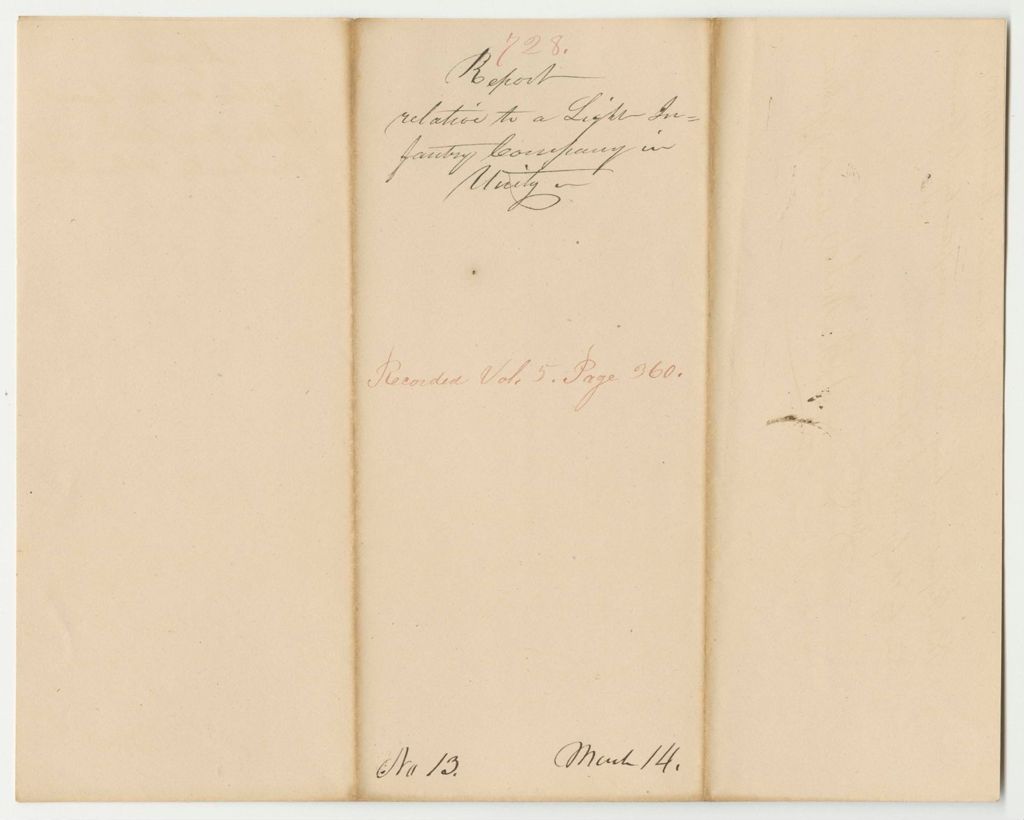 728.
Report
relative to a Light In=
fantry Company in
Unity
Recorded Vol. 5. Page 360.
No 13. March 14.